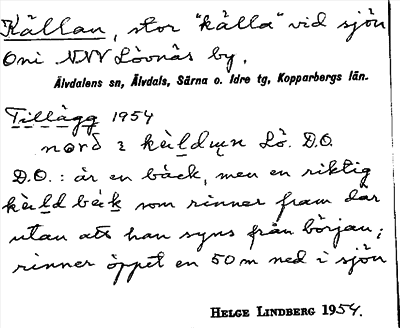 Källan, stor "källa" vid sjön
Oni NNV Lövnäs by.
Älvdalens sn, Älvdals, Särna o. Idre tg, Kopparbergs län.
Tillägg 1954
nord i Lö. D.O.
D.O.: är en bäck, men en riktig
som rinner fram där
utan att han syns från början;
rinner öppet en 50 m ned i sjön
HELGE LINDBERG 1954.